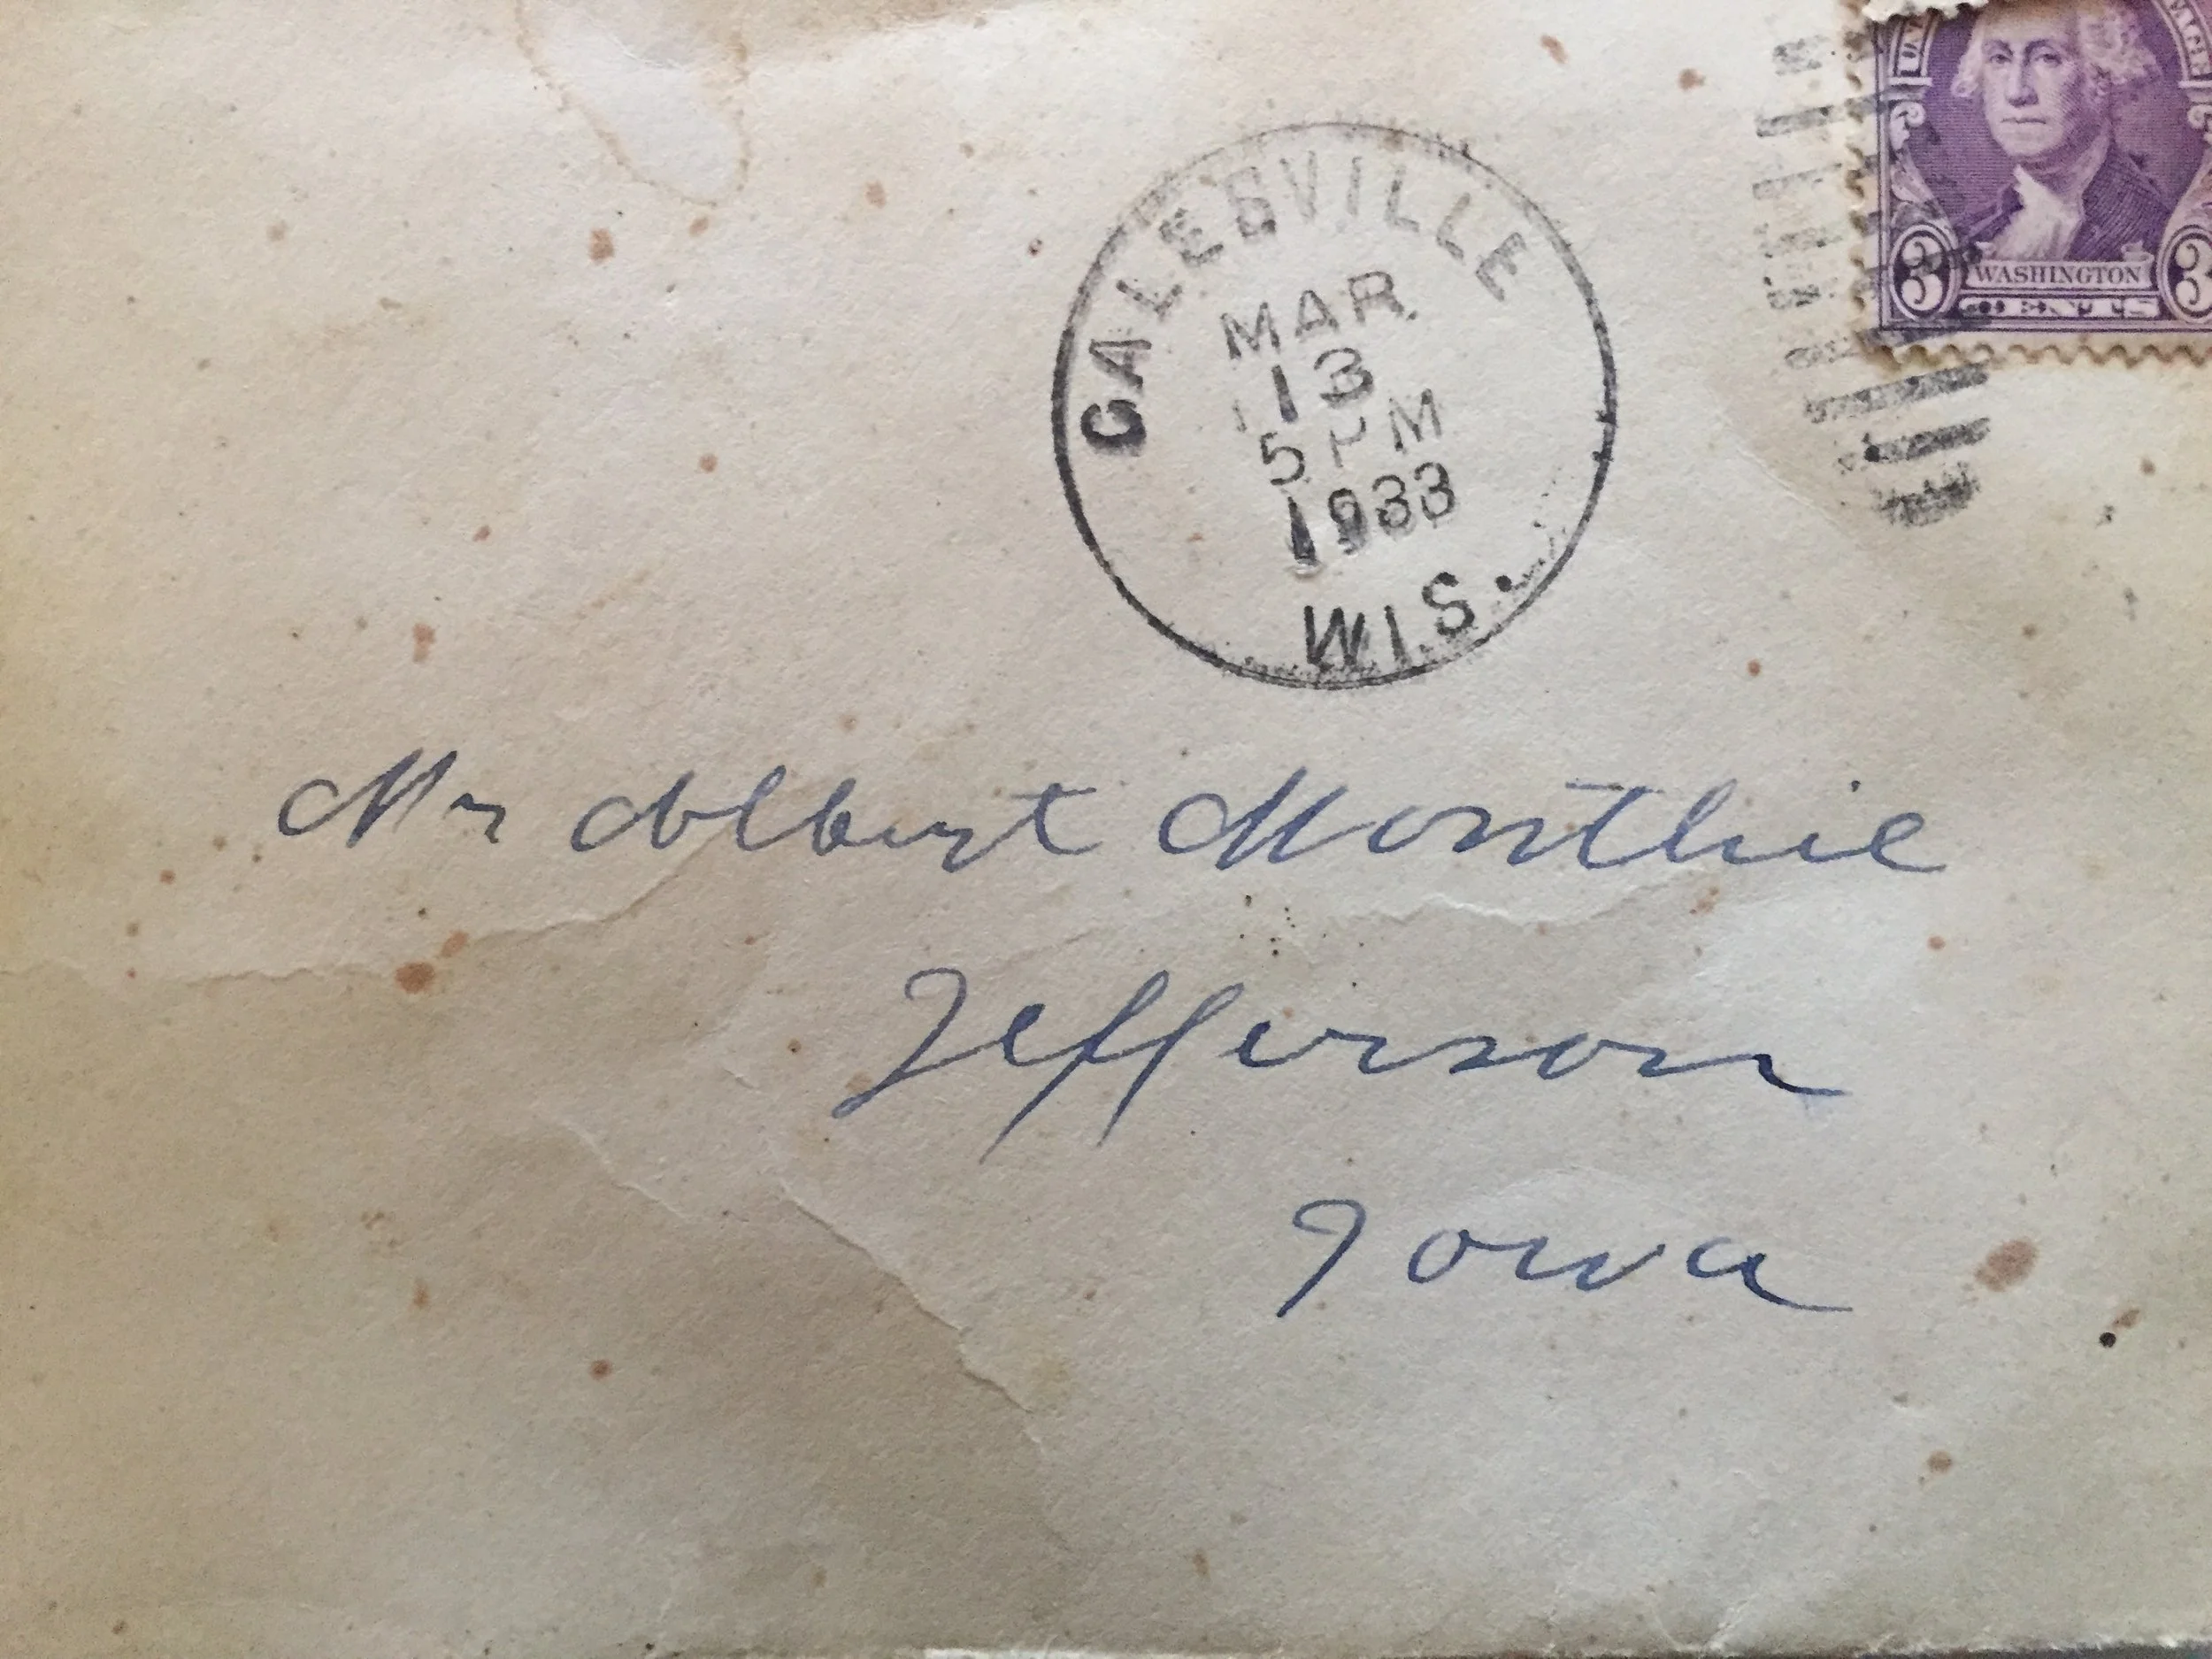 GALESVILLE
MAR
13
5 PM
1933
WIS.
3 WASHINGTON 3
CENTS
Mr Albert Monthie
Jefferson
Iowa